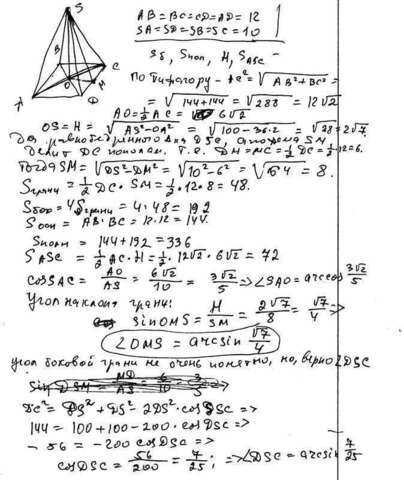 S
B
C
A
O
M
D
AB=BC=CD=AD=12
SA=SD=SB=SC=10
Sб, Sполн, H, SASC -
По Пифагору - AC²=√AB²+BC² =
= √144+144 = √288 = 12√2
AO=½AC = 6√2
OS=H=√AS²-OA² = √100-36·2 = √28=2√7.
Для равнобедренного тр-ка DSC, апофема SM
делит DC пополам. Т.е. DM=MC=½DC=½·12=6.
Тогда SM=√DS²-DM² = √10²-6² = √64 = 8.
Sграни=½DC·SM=½·12·8=48.
Sбок=4Sграни=4·48=192
Sосн=AB·BC=12·12=144.
Sполн=144+192=336
SASC=½AC·H=½·12√2·6√2=72
cosSAC=AO/AS=6√2/10=3√2/5=>∠SAO=arccos 3√2/5
Угол наклона грани:
sinOMS=H/SM=2√7/8=√7/4=>
∠OMS=arcsin √7/4
угол боковой грани не очень понятно, но, верно ∠DSC
sin DSM=MD/AS=6/10=3/5
DC²=DS²+DS²-2DS²·cosDSC=>
144=100+100-200·cosDSC=>
-56=-200cosDSC=>
cosDSC=56/200=7/25; =>∠DSC=arcsin 7/25